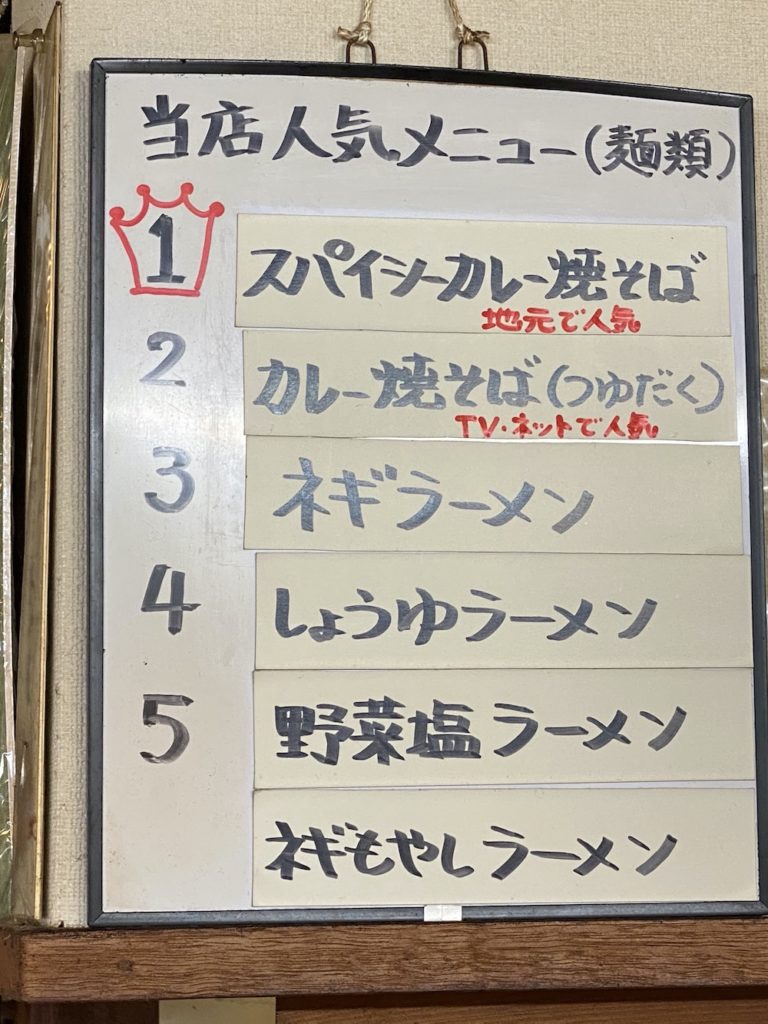 当店人気メニュー(麺類)
1 スパイシーカレー焼そば
地元で人気
2 カレー焼そば(つゆだく)
TV・ネットで人気
3 ネギラーメン
4 しょうゆラーメン
5 野菜塩ラーメン
ネギもやしラーメン